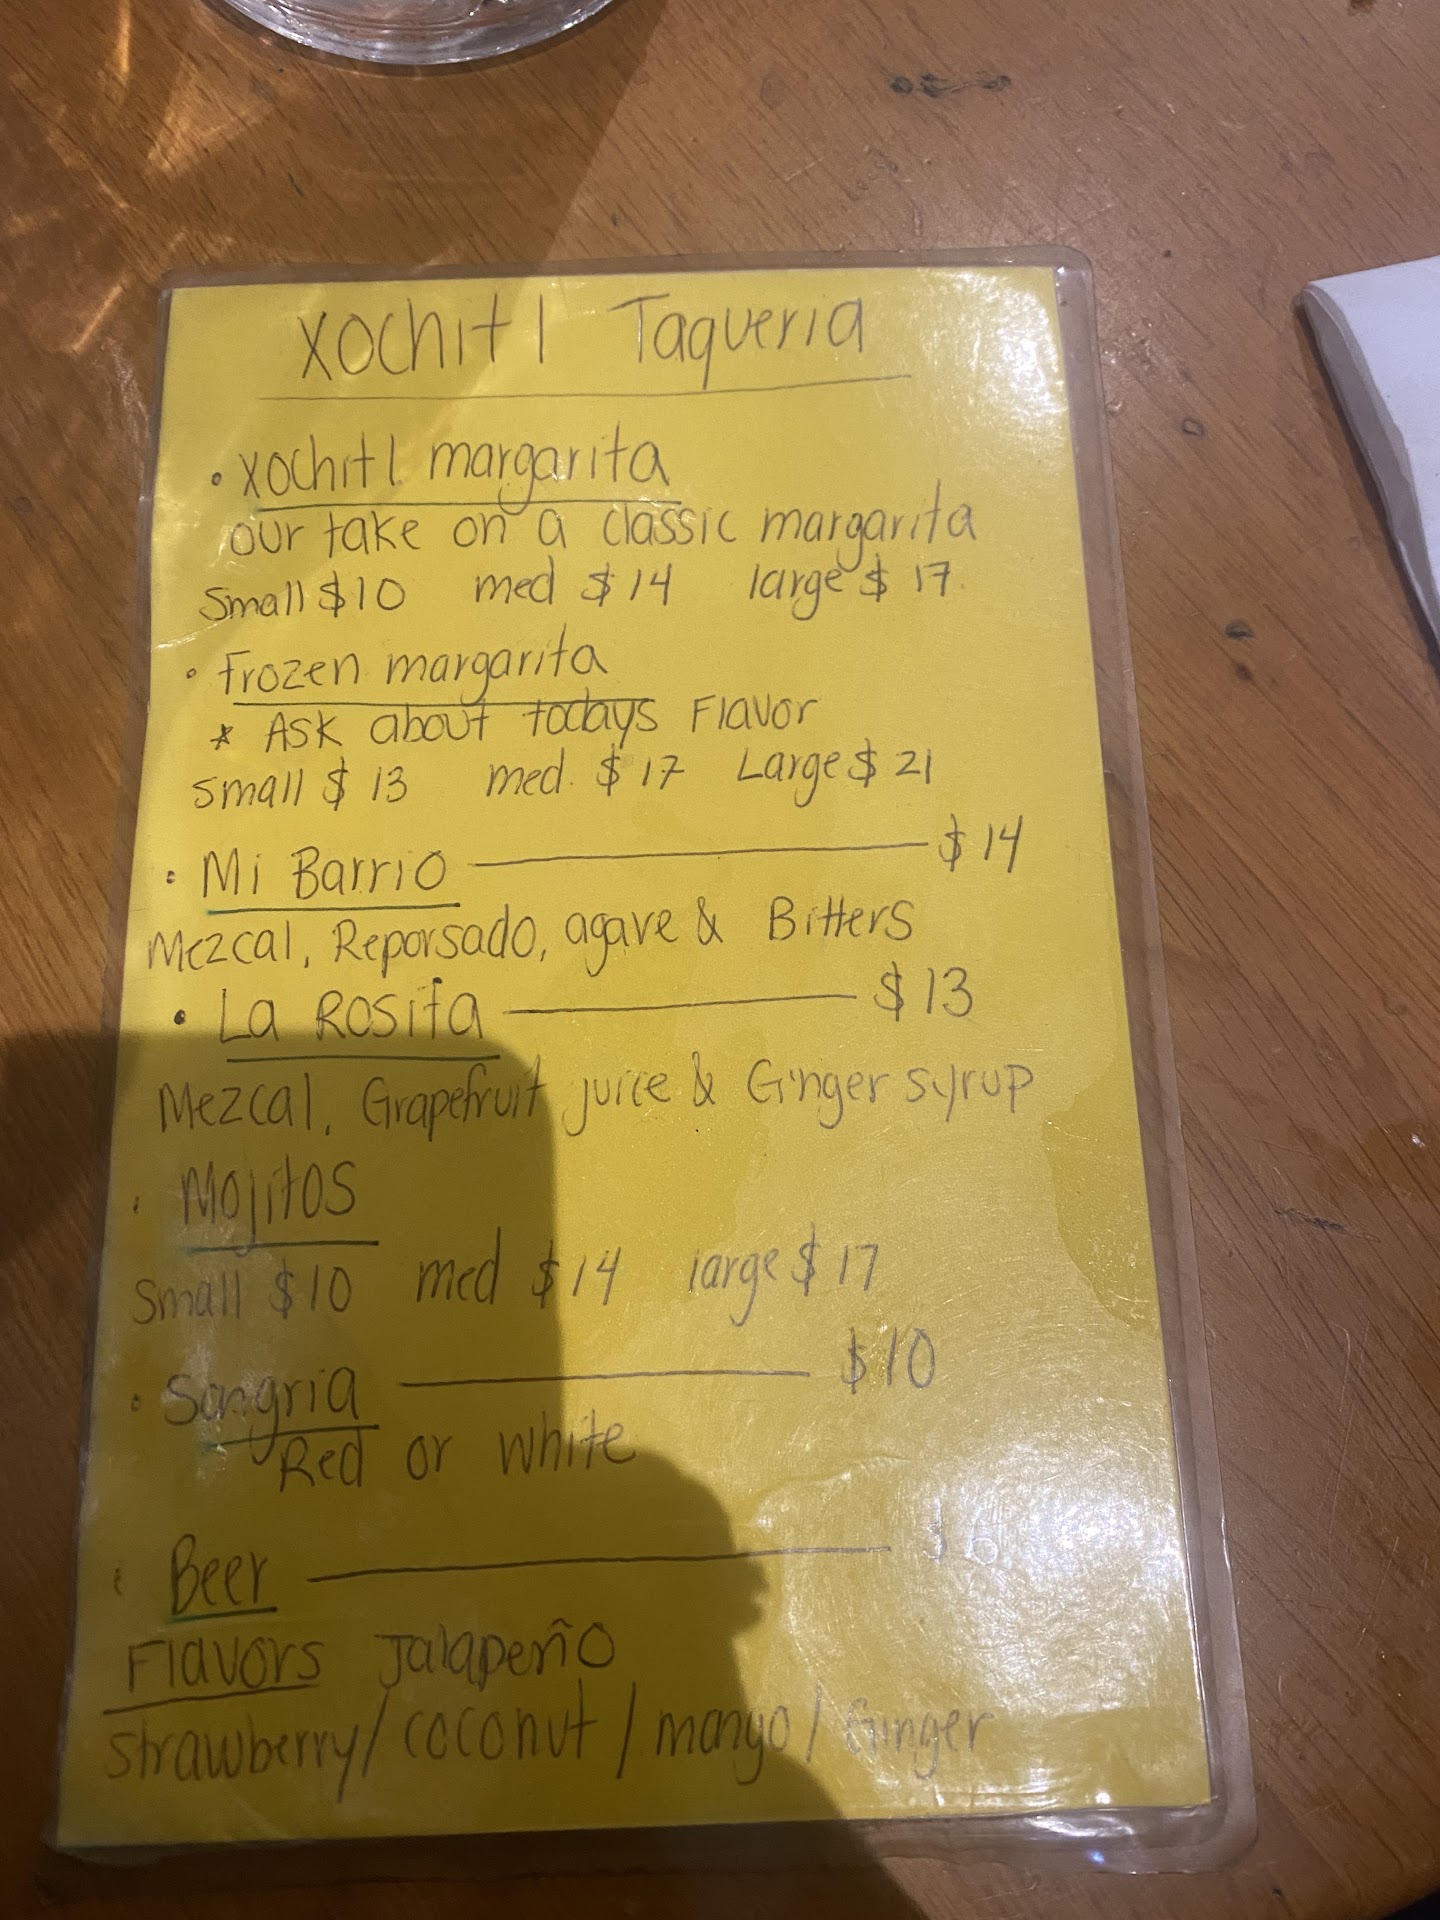 Xochitl Taqueria
• Xochitl margarita
our take on a classic margarita
Small $10 med $14 large $17
• Frozen margarita
* Ask about todays Flavor
Small $13 med. $17 Large $21
• Mi Barrio $14
Mezcal, Reporsado, agave & Bitters
• La Rosita $13
Mezcal, Grapefruit juice & Ginger syrup
• Mojitos
Small $10 med $14 large $17
• Sangria $10
Red or white
• Beer
Flavors Jalapeño
strawberry/coconut/mango/Ginger